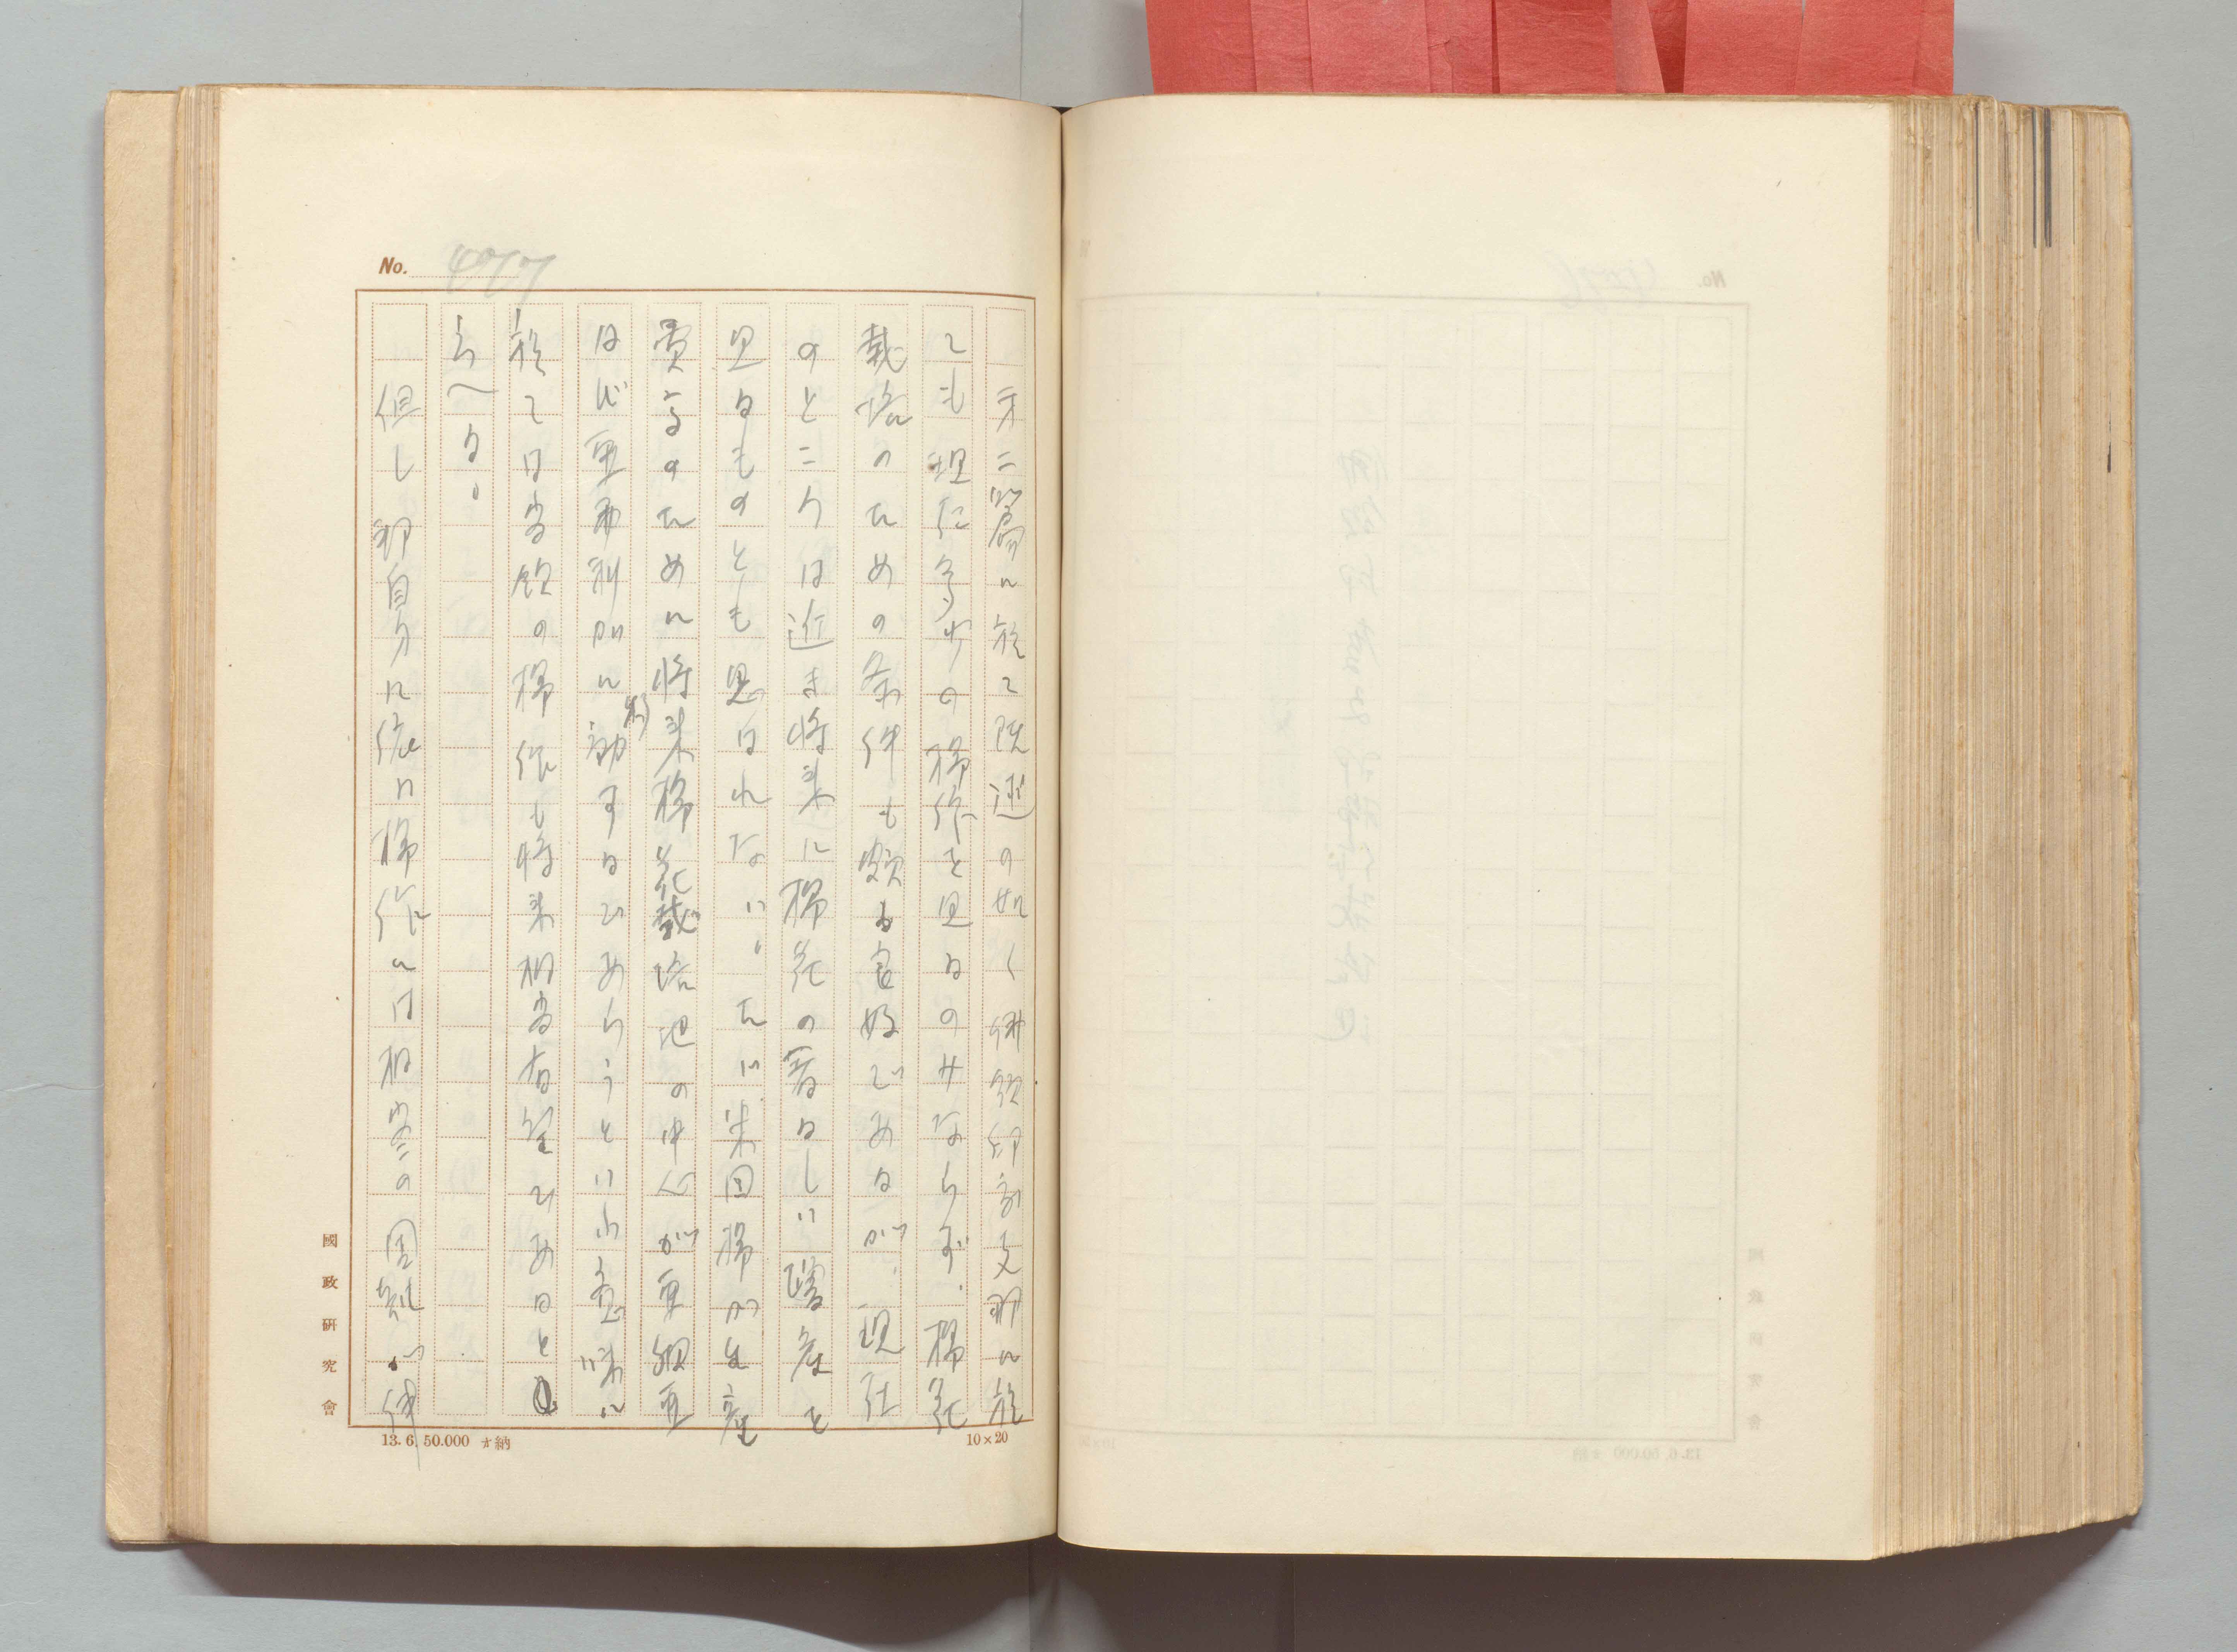 No.
才二篇に於て既述の如く佛領印度支那に於
ても現に多少の棉作を見るのみならず、棉花
栽培のための条件も頗る良好であるが、現在
のところは近き将来に棉花の著るしい増産を
見るものとも思はれない。たゞ米国棉が生産
費高のために将来棉花栽培地の中心が亜細亜
亜弗利加に移動するであらうといふ意味に
於ては当領の棉作も将来相当有望であると
云へる。
但し 自身に 棉作には相当の困難が伴
國政研究會
13. 6. 50.000 納
10×20